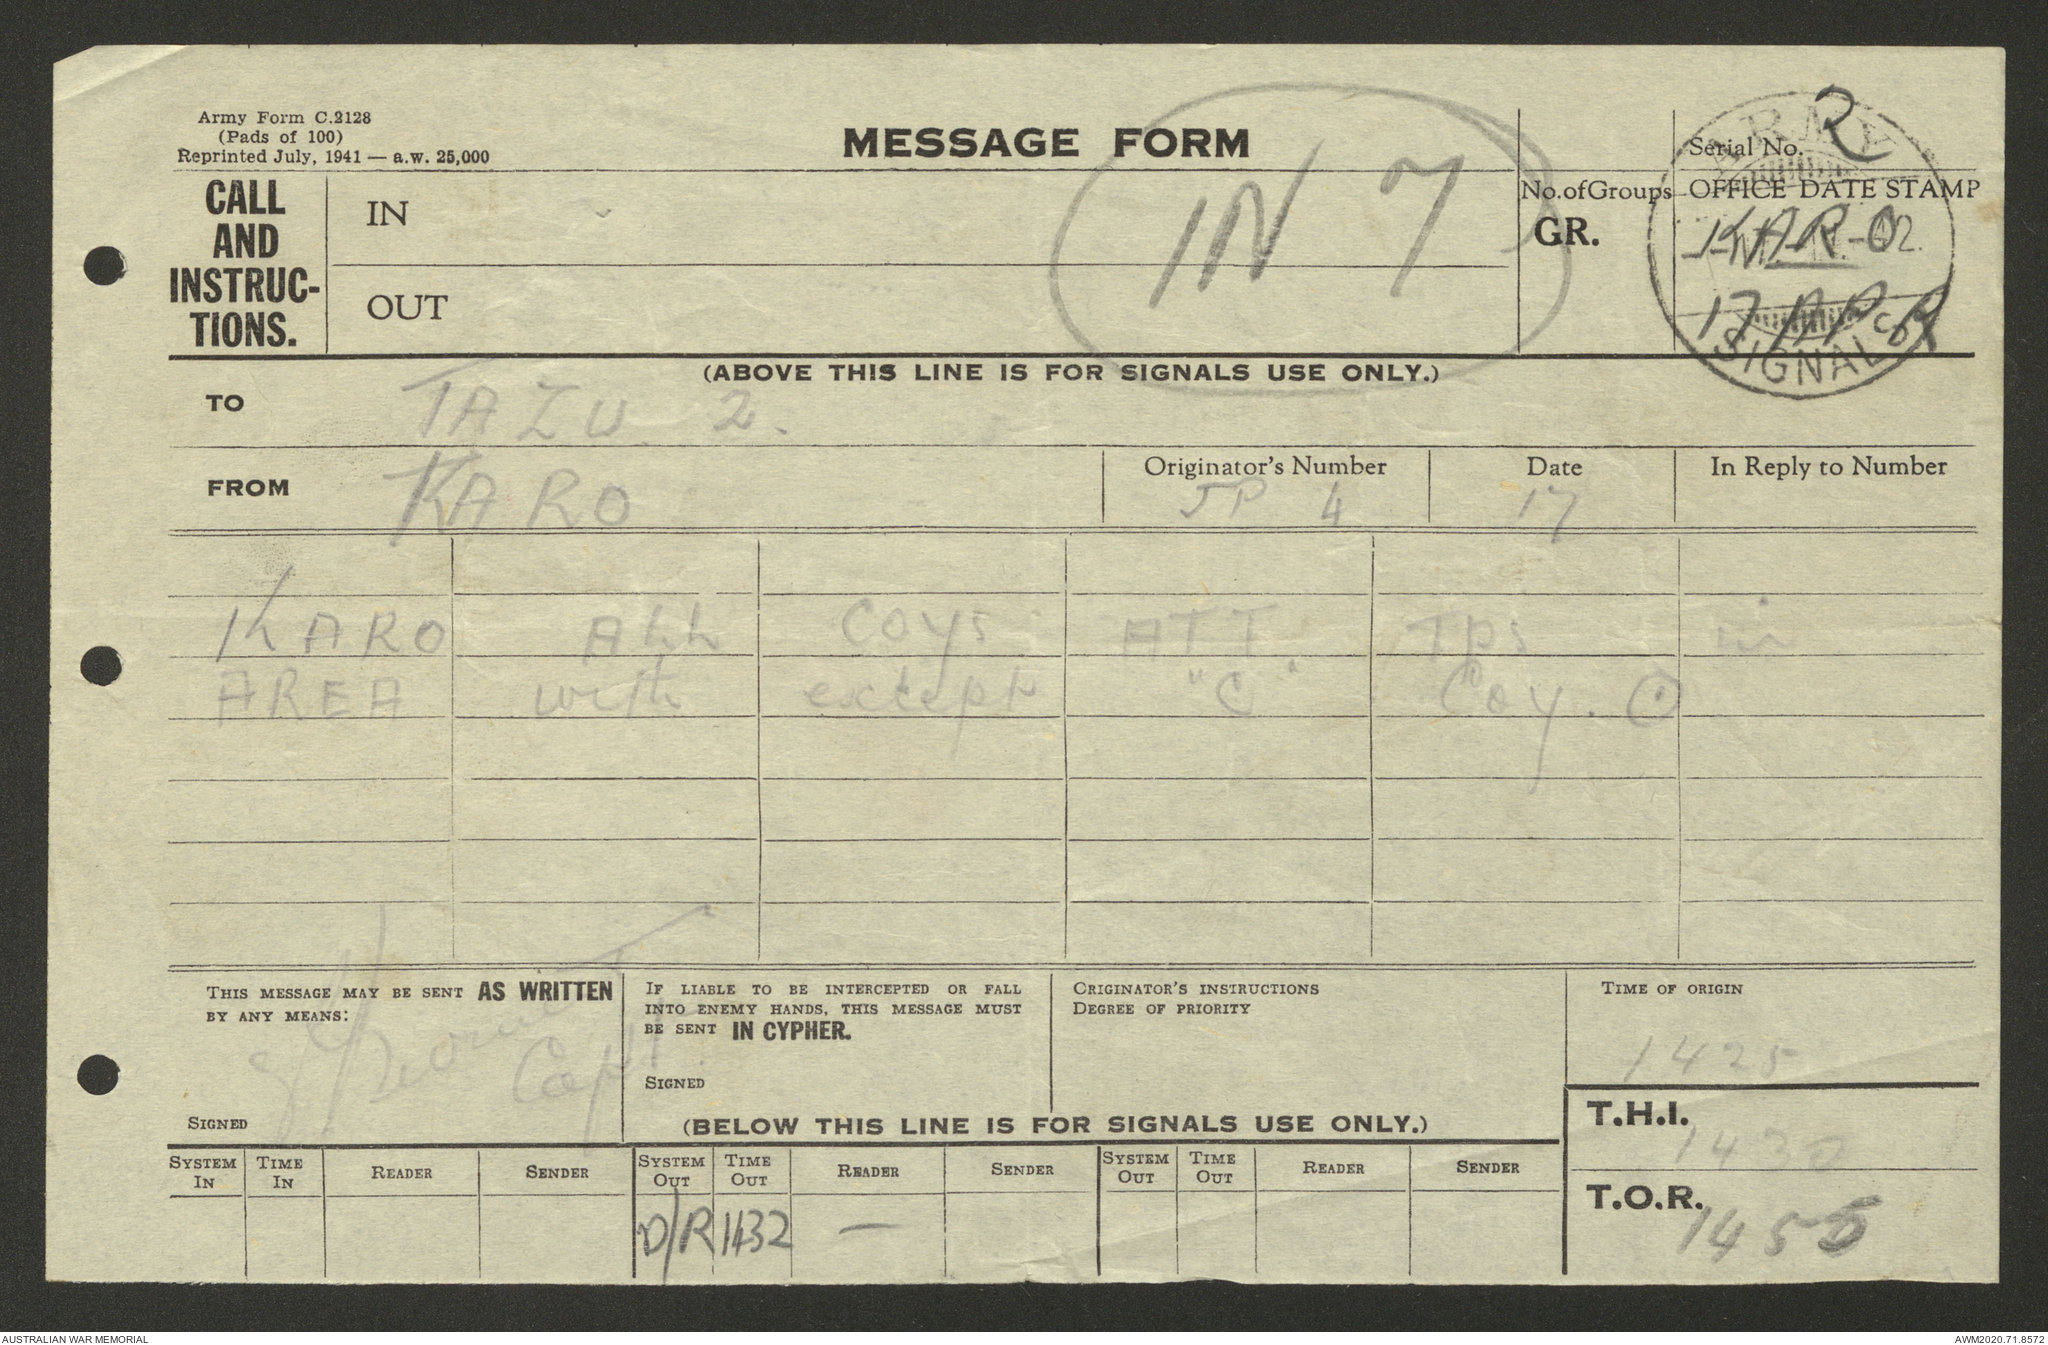 Army Form C.2128
(Pads of 100)
Reprinted July, 1941 — a.w. 25,000
MESSAGE FORM
IN 7
Serial No. 2
CALL AND INSTRUC-TIONS.
IN
OUT
No.ofGroups
GR.
OFFICE DATE STAMP
ARMY
KARO
17 AP
SIGNALS
(ABOVE THIS LINE IS FOR SIGNALS USE ONLY.)
TO TAZU 2.
FROM KARO
Originator's Number JP 4
Date 17
In Reply to Number
KARO ALL COYS ATT TPS in
AREA with except "C" Coy.
THIS MESSAGE MAY BE SENT AS WRITTEN
BY ANY MEANS:
Capt.
SIGNED
IF LIABLE TO BE INTERCEPTED OR FALL
INTO ENEMY HANDS, THIS MESSAGE MUST
BE SENT IN CYPHER.
SIGNED
ORIGINATOR'S INSTRUCTIONS
DEGREE OF PRIORITY
TIME OF ORIGIN
1425
(BELOW THIS LINE IS FOR SIGNALS USE ONLY.)
T.H.I.
1430
T.O.R.
1455
SYSTEM IN TIME IN READER SENDER SYSTEM OUT TIME OUT READER SENDER SYSTEM OUT TIME OUT READER SENDER
D/R 1432 —
AUSTRALIAN WAR MEMORIAL
AWM2020.71.8572